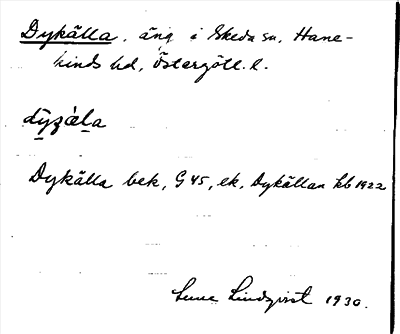 Dykälla, äng i Skeda sn, Hane-
kinds hd, Östergötl. l.
Dykälla bek, G 45, ek. Dykällan hb 1922
Sune Lindqvist 1930.